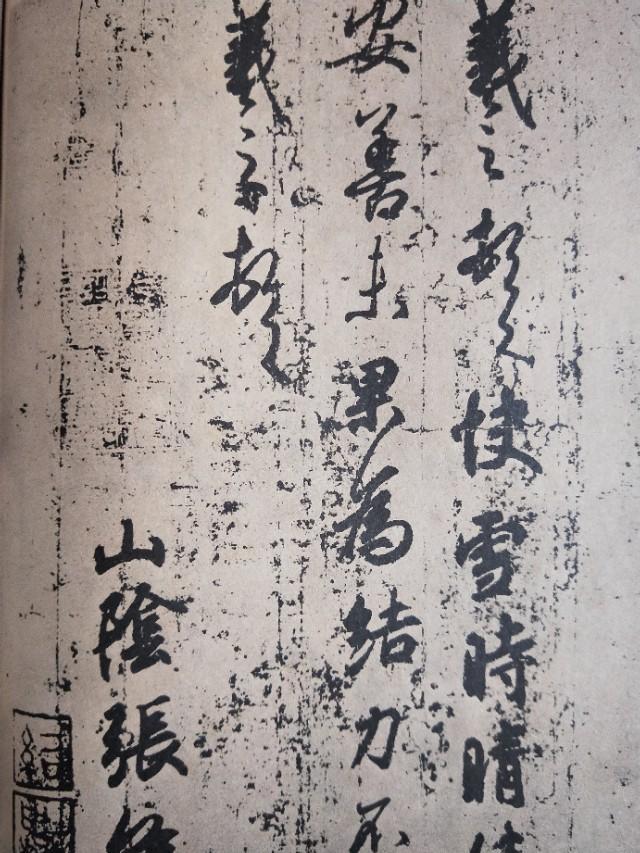 羲之頓首快雪時晴佳
安善未果為結力不
羲之頓首
山陰張侯